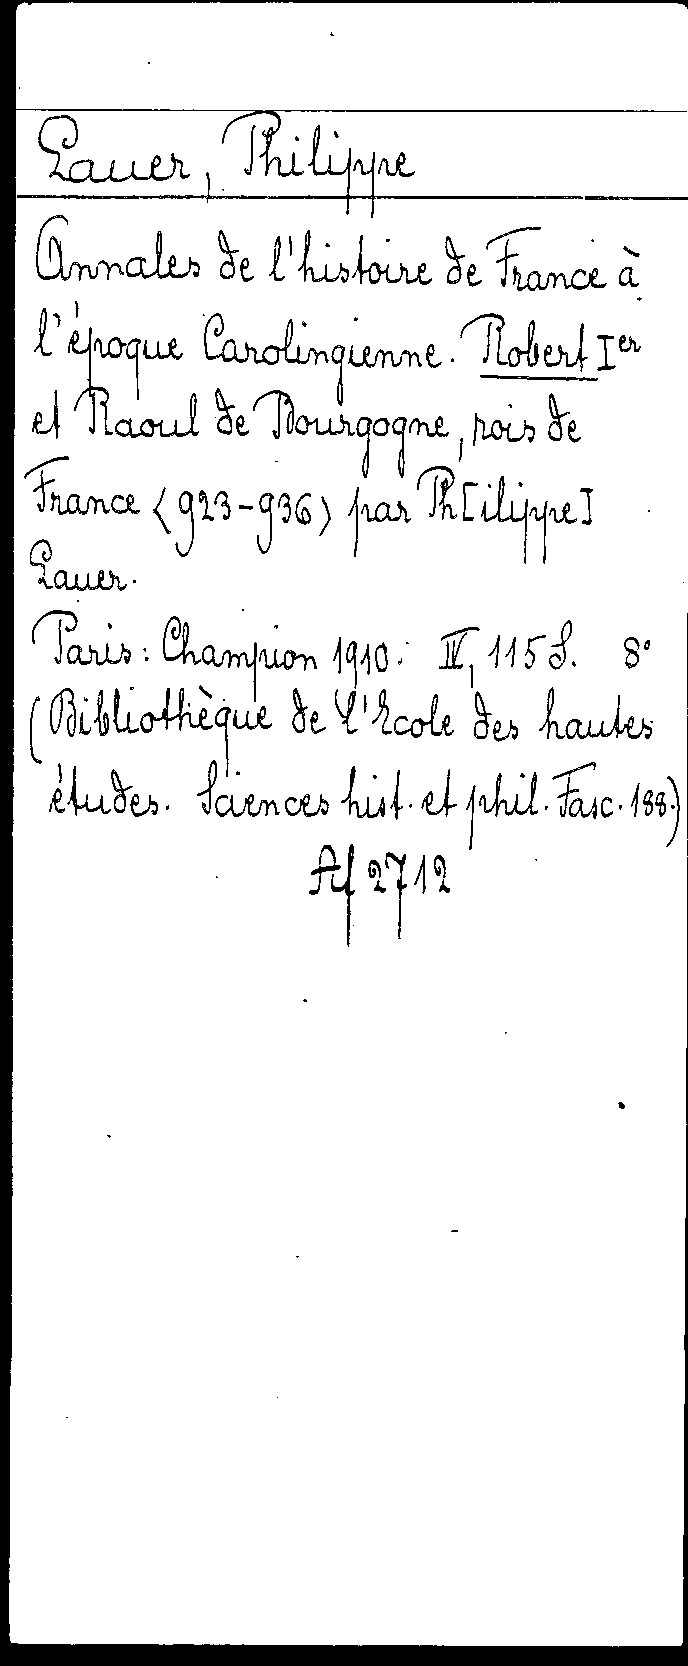 Lauer, Philippe
Annales de l'histoire de France à
l'époque Carolingienne. Robert Ier
et Raoul de Bourgogne, rois de
France <923-936> par Ph[ilippe]
Lauer.
Paris: Champion 1910. IV, 115 S. 8°
(Bibliothèque de l'Ecole des hautes
études. Sciences hist. et phil. Fasc. 188.)
Af 2712